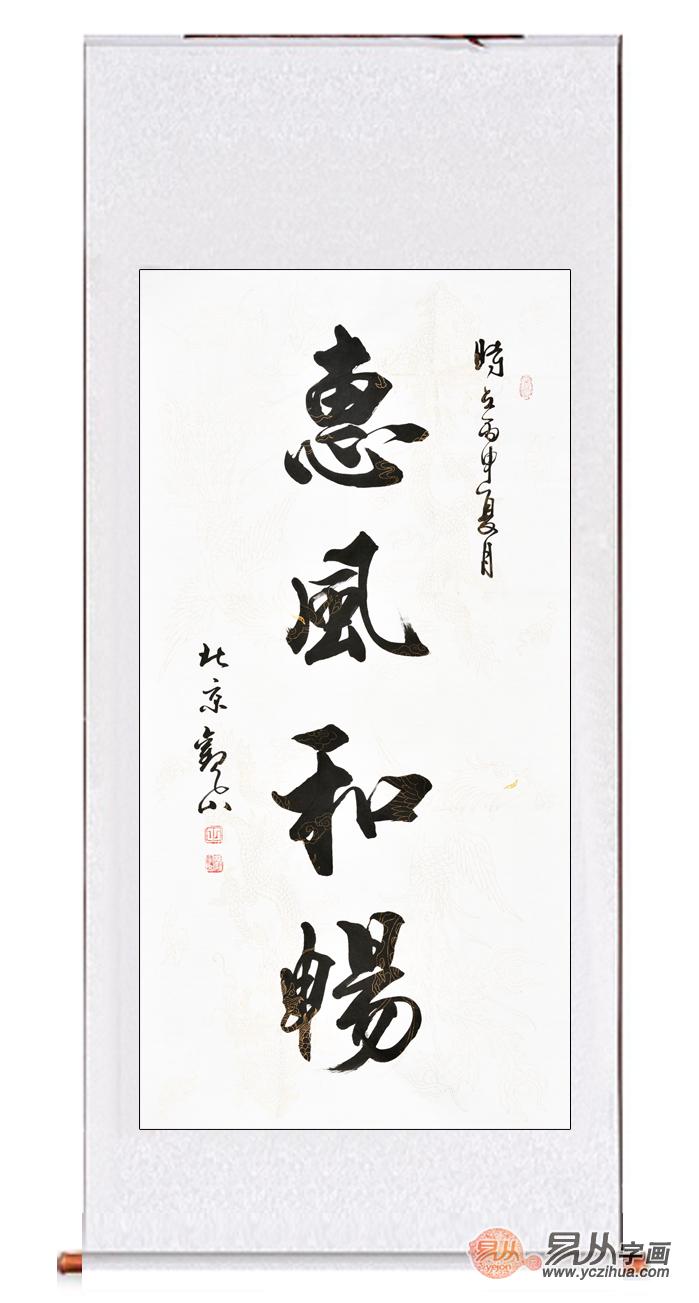 時在丙申夏月
惠風和暢
北京觀山
易从
yejon
易从字画
www.yczihua.com